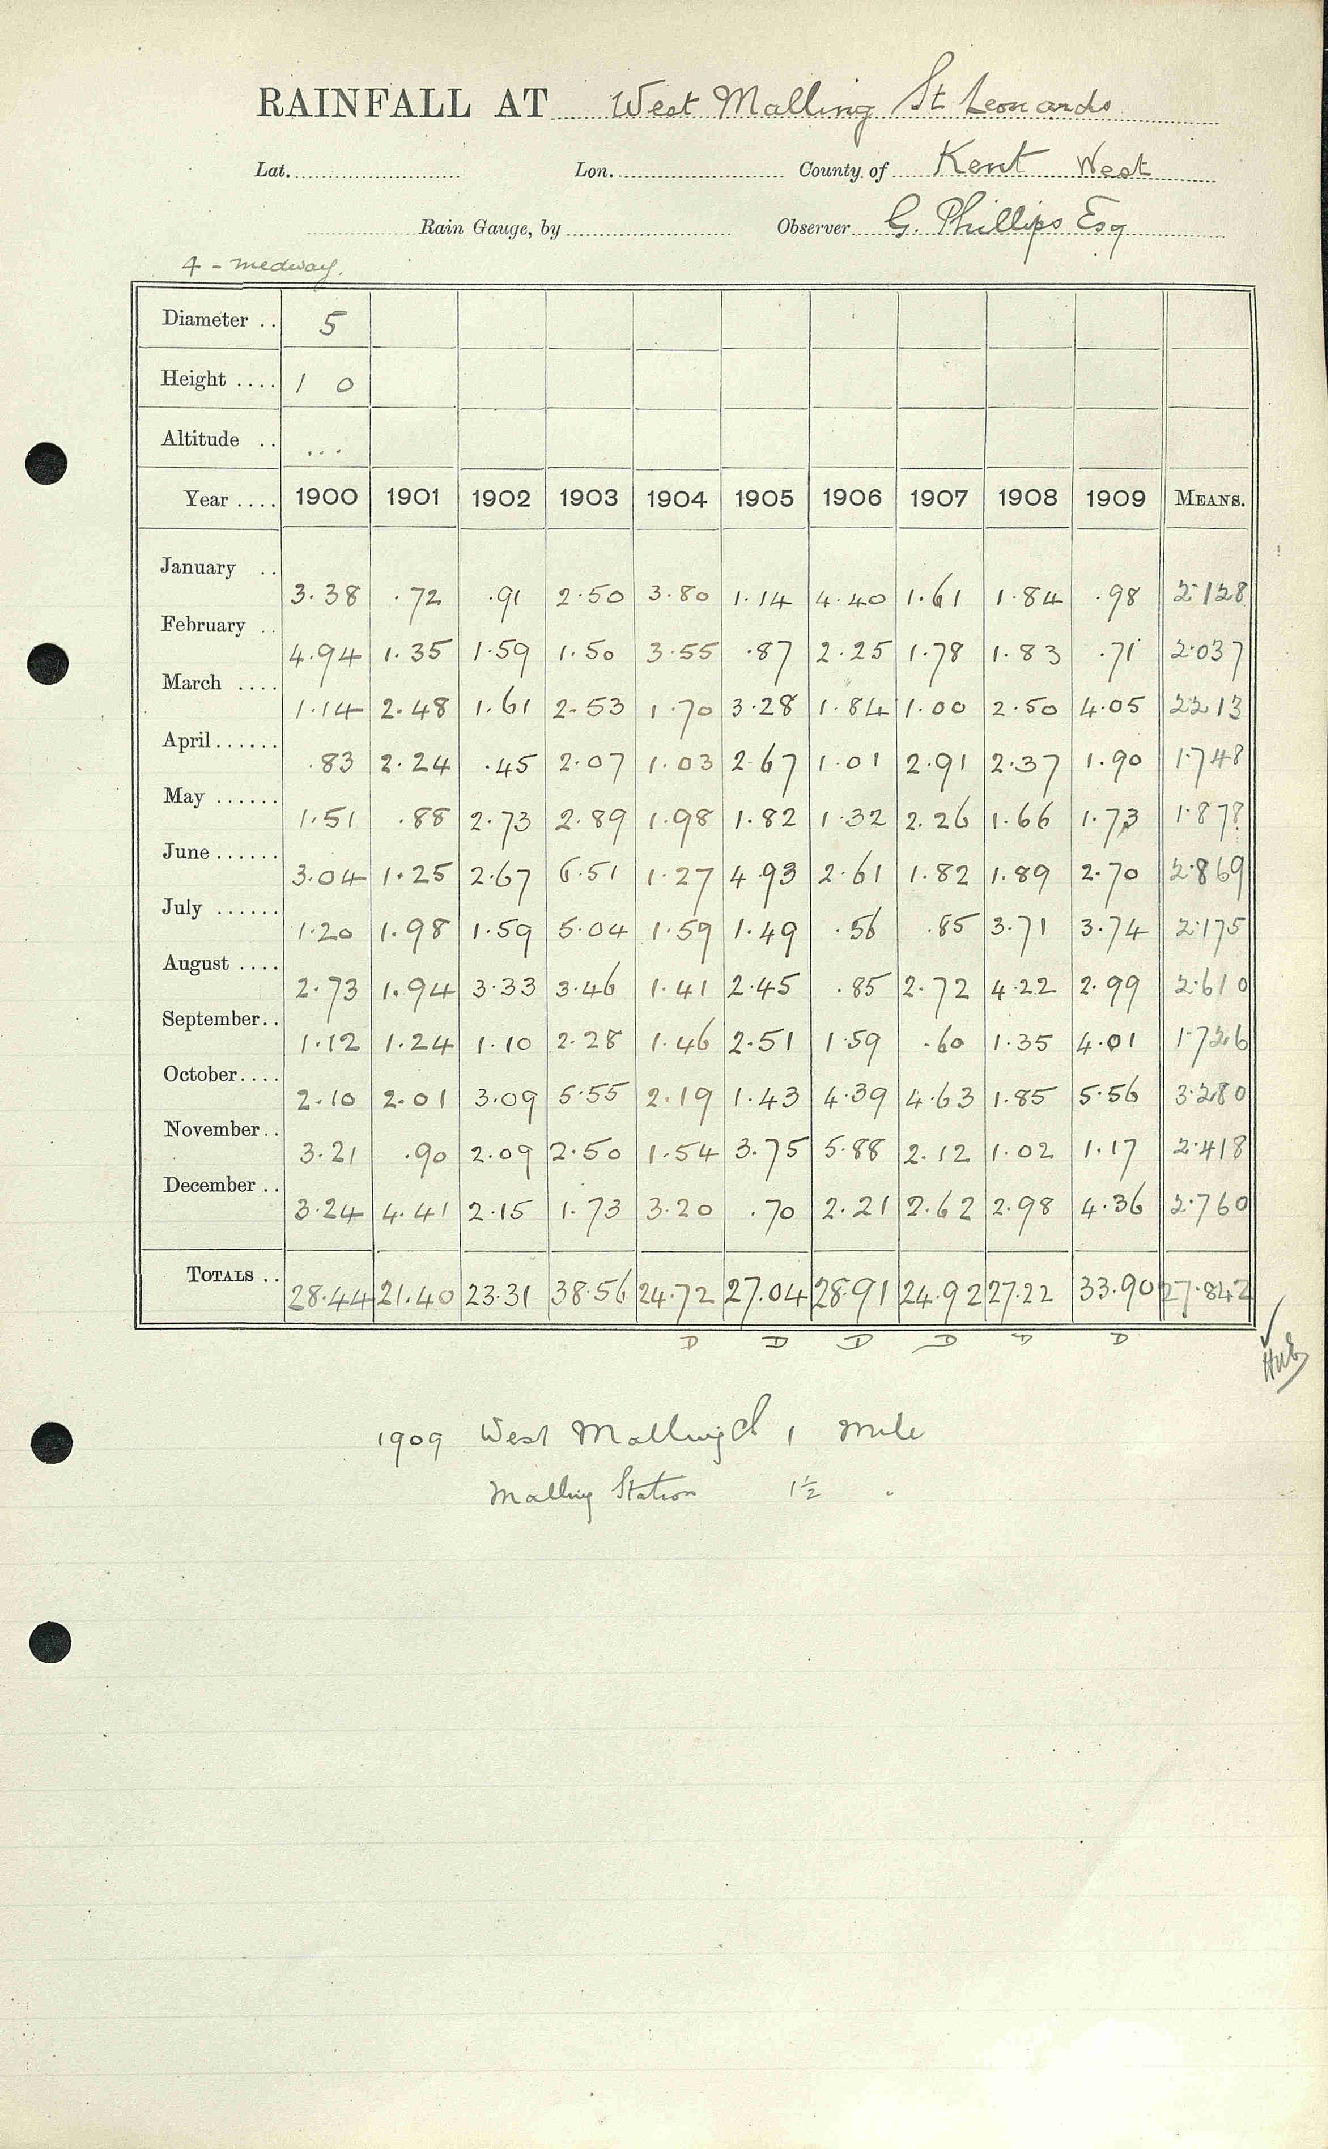 RAINFALL AT West Malling St Leonards
Lat. Lon. County of Kent West
Rain Gauge, by Observer G. Phillips Esq
4 - Medway.
Diameter .. 5
Height .... 1 0
Altitude .. ...
Year .... 1900 1901 1902 1903 1904 1905 1906 1907 1908 1909 MEANS.
January .. 3.38 .72 .91 2.50 3.80 1.14 4.40 1.61 1.84 .98 2.128
February .. 4.94 1.35 1.59 1.50 3.55 .87 2.25 1.78 1.83 .71 2.037
March .... 1.14 2.48 1.61 2.53 1.70 3.28 1.84 1.00 2.50 4.05 2.213
April...... .83 2.24 .45 2.07 1.03 2.67 1.01 2.91 2.37 1.90 1.748
May ...... 1.51 .88 2.73 2.89 1.98 1.82 1.32 2.26 1.66 1.73 1.878
June...... 3.04 1.25 2.67 6.51 1.27 4.93 2.61 1.82 1.89 2.70 2.869
July ...... 1.20 1.98 1.59 5.04 1.59 1.49 .56 .85 3.71 3.74 2.175
August .... 2.73 1.94 3.33 3.46 1.41 2.45 .85 2.72 4.22 2.99 2.610
September.. 1.12 1.24 1.10 2.28 1.46 2.51 1.59 .60 1.35 4.01 1.726
October.... 2.10 2.01 3.09 5.55 2.19 1.43 4.39 4.63 1.85 5.56 3.280
November.. 3.21 .90 2.09 2.50 1.54 3.75 5.88 2.12 1.02 1.17 2.418
December .. 3.24 4.41 2.15 1.73 3.20 .70 2.21 2.62 2.98 4.36 2.760
TOTALS .. 28.44 21.40 23.31 38.56 24.72 27.04 28.91 24.92 27.22 33.90 27.842
D D D D D D
1909 West Malling 1 mile
Malling Station 1½ "